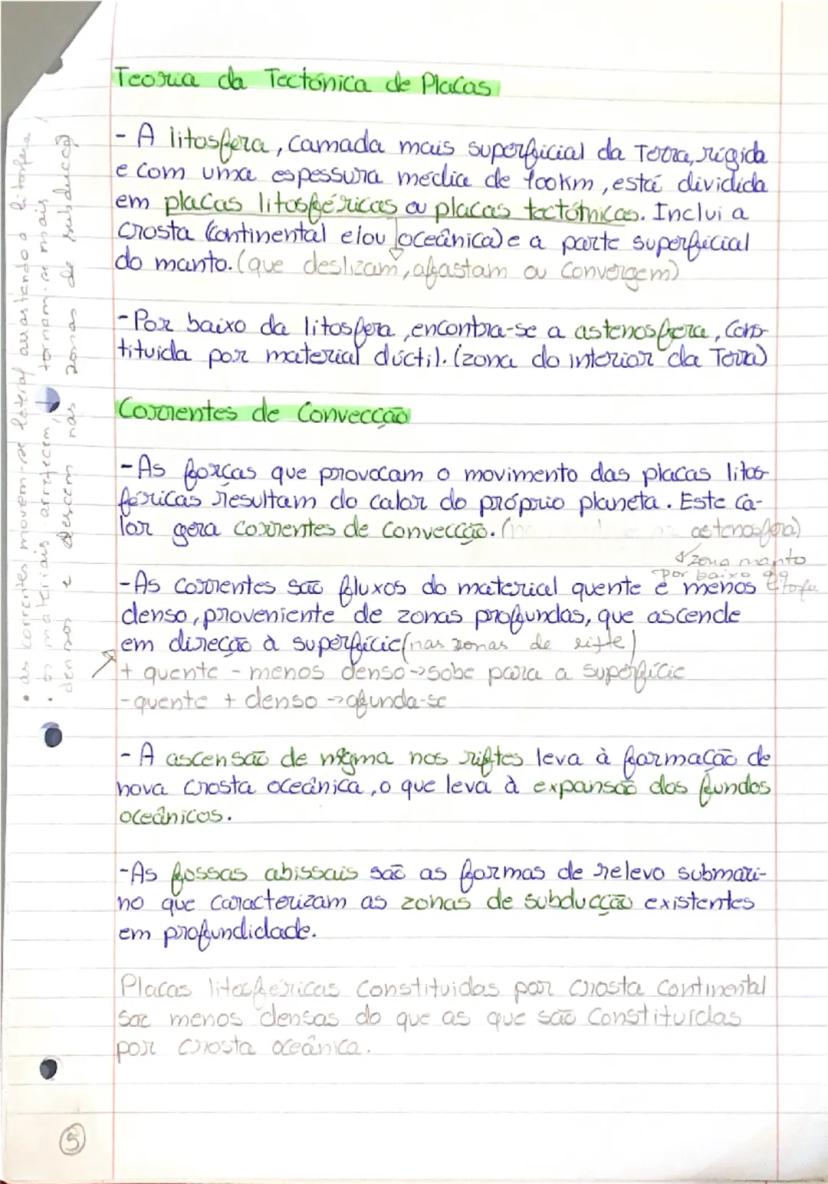 Teoria da Tectónica de Placas
- A litosfera, camada mais superficial da Terra, rígida
e com uma espessura média de 100km, está dividida
em placas litosféricas ou placas tectónicas. Inclui a
crosta (continental e/ou oceânica) e a parte superficial
do manto. (que deslizam, afastam ou convergem)
- Por baixo da litosfera, encontra-se a astenosfera, cons-
tituida por material dúctil. (zona do interior da Terra)
Correntes de Convecção
- As forças que provocam o movimento das placas litos-
féricas resultam do calor do próprio planeta. Este ca-
lor gera correntes de convecção. (astenosfera)
zona manto
por baixo da
- As correntes são fluxos do material quente e menos
denso, proveniente de zonas profundas, que ascende
em direcção à superfície (nas zonas de rifte)
+ quente - menos denso → sobe para a superfície
- quente + denso → afunda-se
- A ascensão de mgma nos riftes leva à formação de
nova crosta oceânica, o que leva à expansão dos fundos
oceânicos.
- As fossas abissais são as formas de relevo submari-
no que caracterizam as zonas de subducção existentes
em profundidade.
Placas litosféricas constituidas por crosta continental
são menos densas do que as que são constituídas
por crosta oceânica.
• as correntes movem-se lateral arrastando a litosfera
• os materiais arrefecem, tornam-se mais
densos e descem nas zonas de subducção
5